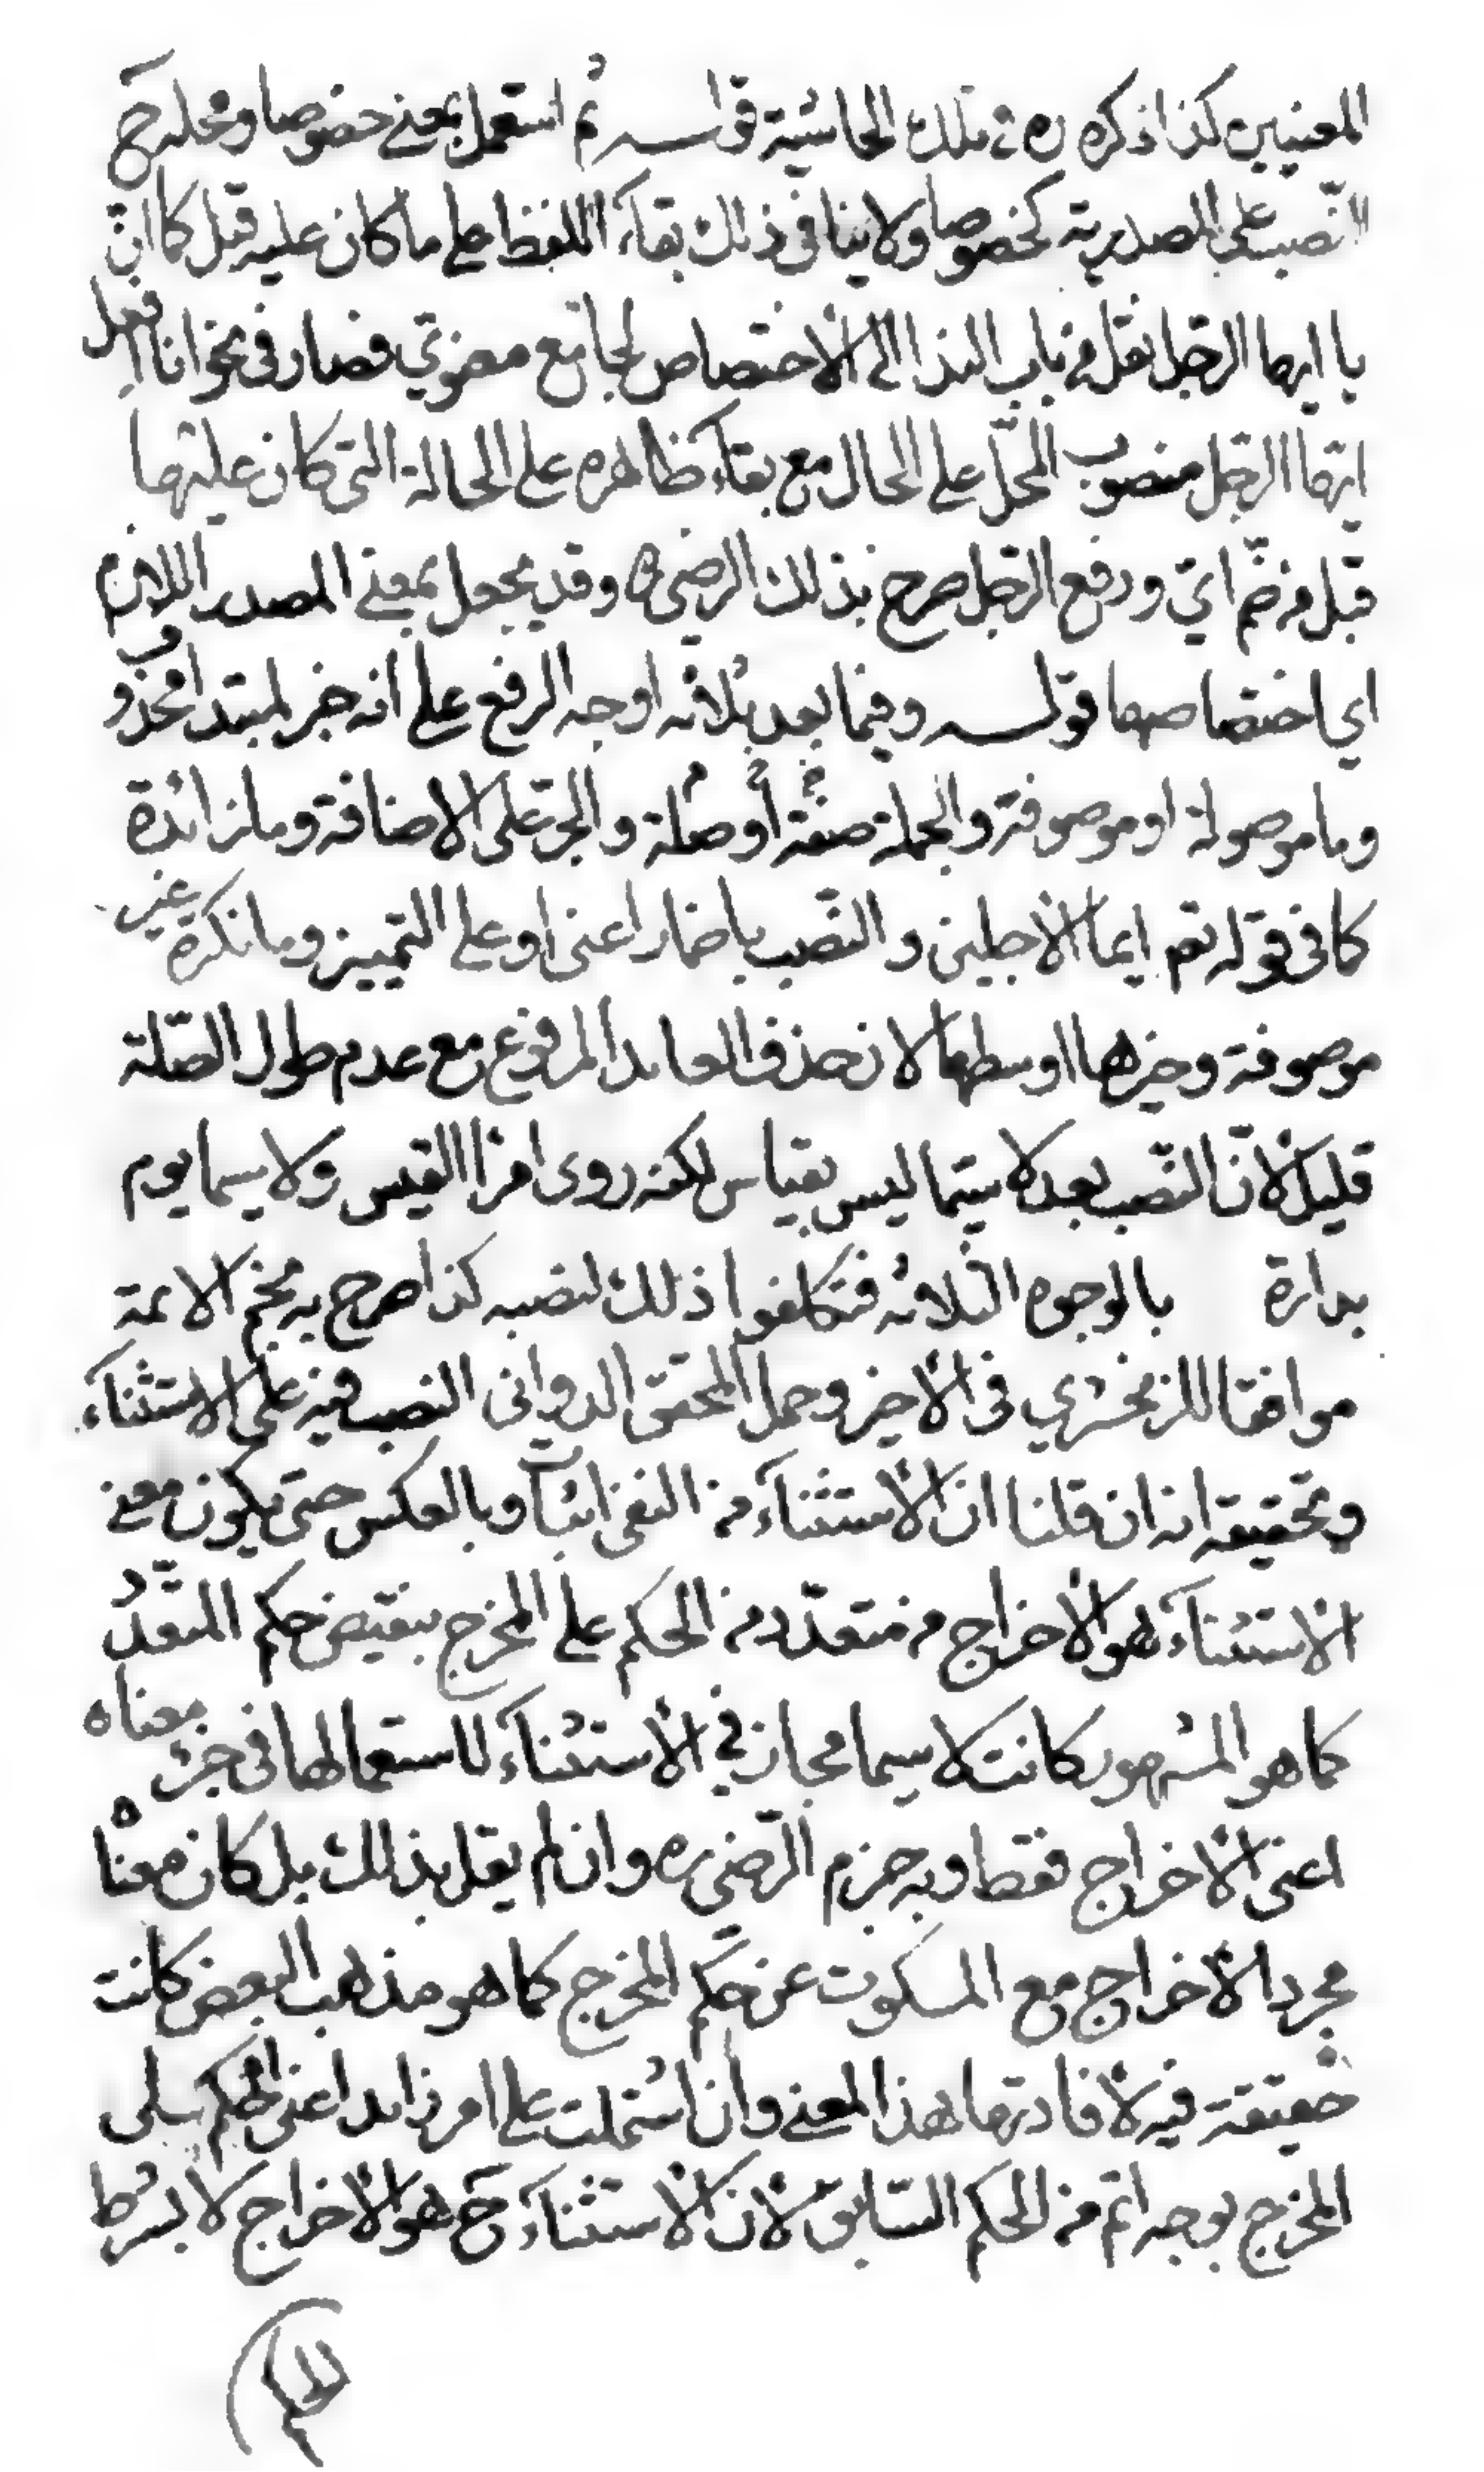 المعنيين كذا ذكره ره في تلك الحاشية قوله ثم استعمل بمعنى خصوصا ومحله ح
النّصب على المصدرية كخصوصا ولا ينافي ذلك بقاء اللفظ على ما كان عليه قبل كما انّ
يا ايها الرجل نقل من باب الندا الى الاختصاص لجامع معنوي فصار في نحو انا افعل
ايّها الرجل منصوب المحلّ على الحال مع بقاء ظاهره على الحالة التي كان عليها
قبل من ضمّ ايّ ورفع الرجل صرح بذلك الرضي ره وقد يجعل بمعنى المصدر اللازم
اي اختصاصها قوله وفيما بعد ثلاثه اوجه الرفع على انه خبر لمبتدا محذوف
وما موصولة او موصوفة والجملة صفة أو صلة والجرّ على الاضافة وما زائدة
كما في قوله تعم ايما الاجلين والنّصب باضمار اعني او على التمييز وما نكرة غير
موصوفة وخيرها اوسطها لان حذف العايد المرفوع مع عدم طول الصّلة
قليل ولانّ النّصب بعد لا سيّما ليس بقياس لكنه روى امرا القيس ولا سيما يوم
بدارة بالوجوه الثلاثه فتكلفوا ذلك لنصبه كذا صرح به نجم الائمة
موافقا للزمخشري في الاخير وحمل المحقق الدواني النصب فيه على الاستثناء
وتحقيقه انه ان قلنا ان الاستثناء من النفي اثبات وبالعكس حتى يكون معنى
الاستثناء هو الاخراج من متعدّد من الحكم على المخرج بنقيض حكم المتعدّد
كما هو المشهور كانت لا سيما مجاز في الاستثناء لاستعمالها في جزء معناه
اعني الاخراج فقط وبه جزم الرّضي ره وان لم يقل بذلك بل كان معناه
مجرد الاخراج مع السكوت عن حكم المخرج كما هو مذهب البعض كانت
حقيقة فيه لافادتها هذا المعنى وان اشتملت على امر زايد اعني الحكم على
المخرج بوجه اتم من الحكم السّابق لان الاستثناء ح هو الاخراج لا بشرط
الحكم